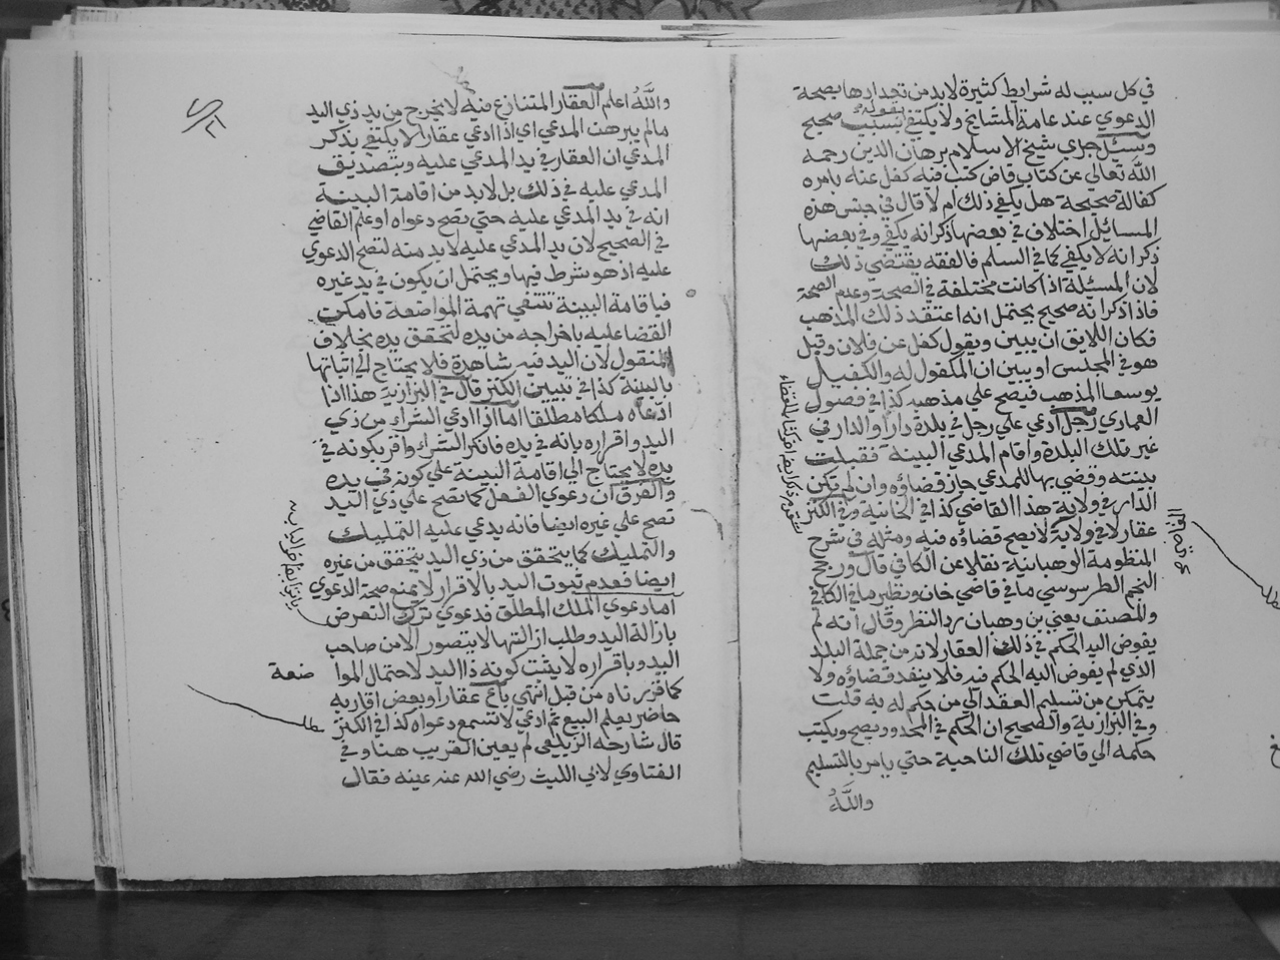 في كل سبب له شرايط كثيرة لا بد من تعدادها بصحة
الدعوي عند عامة المشايخ ولا يكتفي بقوله بسبب صحيح
وسئل جدي شيخ الاسلام برهان الدين رحمه
الله تعالي عن كتاب قاض كتب فيه كفل عنه بامره
كفالة صحيحة هل يكفي ذلك ام لا قال في جنس هذه
المسائل اختلاف في بعضها ذكر انه يكفي وفي بعضها
ذكر انه لا يكفي كما في السلم فالفقه يقتضي ذلك
لان المسئلة اذا كانت مختلفة في الصحة وعدم الصحة
فاذا ذكر انه صحيح يحتمل انه اعتقد ذلك المذهب
فكان اللايق ان يبين ويقول كفل عن فلان وقبل
هو في المجلس او يبين ان المكفول له والكفيل
المذهب فيصح علي مذهبه كذا في فصول
العمادي رجل ادعي علي رجل في بلدة دارا والدار في
غير تلك البلدة واقام المدعي البينة فقبلت
بينته وقضي بها للمدعي جاز قضاؤه وان لم تكن
الدار في ولاية هذا القاضي كذا في الخانية وفي الكنز
عقار لا في ولايته لا يصح قضاؤه فيه ومثله في شرح
المنظومة الوهبانية نقلا عن الكافي قال ورجح
النجم الطرسوسي ما في قاضي خان ونظير ما في الكافي
والمصنف يعني بن وهبان رد النظر وقال انه لم
يفوض اليه الحكم في ذلك العقار لانه من جملة البلد
الذي لم يفوض اليه الحكم فيه فلا ينفد قضاؤه ولا
يتمكن من تسليم العقد الي من حكم له به قلت
وفي البزازية والصحيح ان الحكم في المحدود يصح ويكتب
حكمه الي قاضي تلك الناحية حتي يامر بالتسليم
والله
والله اعلم العقار المتنازع فيه لا يخرج من يد ذي اليد
مالم يبرهن المدعي اي اذا ادعي عقارا لا يكتفي بذكر
المدعي ان العقار في يد المدعي عليه وبتصديق
المدعي عليه في ذلك بل لا بد من اقامة البينة
انه في يد المدعي عليه حتي تصح دعواه او علم القاضي
في الصحيح لان يد المدعي عليه لا بد منه لتصح الدعوي
عليه اذ هو شرط فيها ويحتمل ان يكون في يد غيره
فباقامة البينة تنتفي تهمة المواضعة فامكن
القضا عليه باخراجه من يده لتحقق يده بخلاف
المنقول لان اليد فيه شاهدة فلا يحتاج الي اثباتها
بالبينة كذا في تبيين الكنز قال في البزازية هذا اذا
ادعاه ملكا مطلقا اما اذا ادعي الشراء من ذي
اليد واقراره بانه في يده فانكر الشراء واقر بكونه في
يده لا يحتاج الي اقامة البينة علي كونه في يده
والفرق ان دعوي الفعل كما تصح علي ذي اليد
تصح علي غيره ايضا فانه يدعي عليه التمليك
والتمليك كما يتحقق من ذي اليد يتحقق من غيره
ايضا فعدم ثبوت اليد بالاقرار لا يمنع صحة الدعوي
اما دعوي الملك المطلق فدعوي ترك التعرض
بازالة اليد وطلب ازالتها لا يتصور الا من صاحب
اليد وباقراره لا يثبت كونه ذا اليد لاحتمال الموا
ضعة
كما قررناه من قبل انتهي باع عقارا وبعض اقاربه
حاضر يعلم البيع ثم ادعي لا تسمع دعواه كذا في الكنز
قال شارحه الزيلعي لم يعين القريب هنا وفي
الفتاوي لابي الليث رضي الله عنه عينه فقال